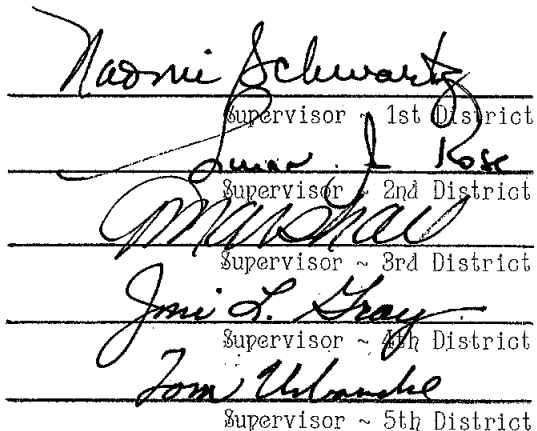 Naomi Schwartz
Supervisor ~ 1st District
Susan J Rose
Supervisor ~ 2nd District
Marshall
Supervisor ~ 3rd District
Joni L. Gray
Supervisor ~ 4th District
Tom Urbanske
Supervisor ~ 5th District